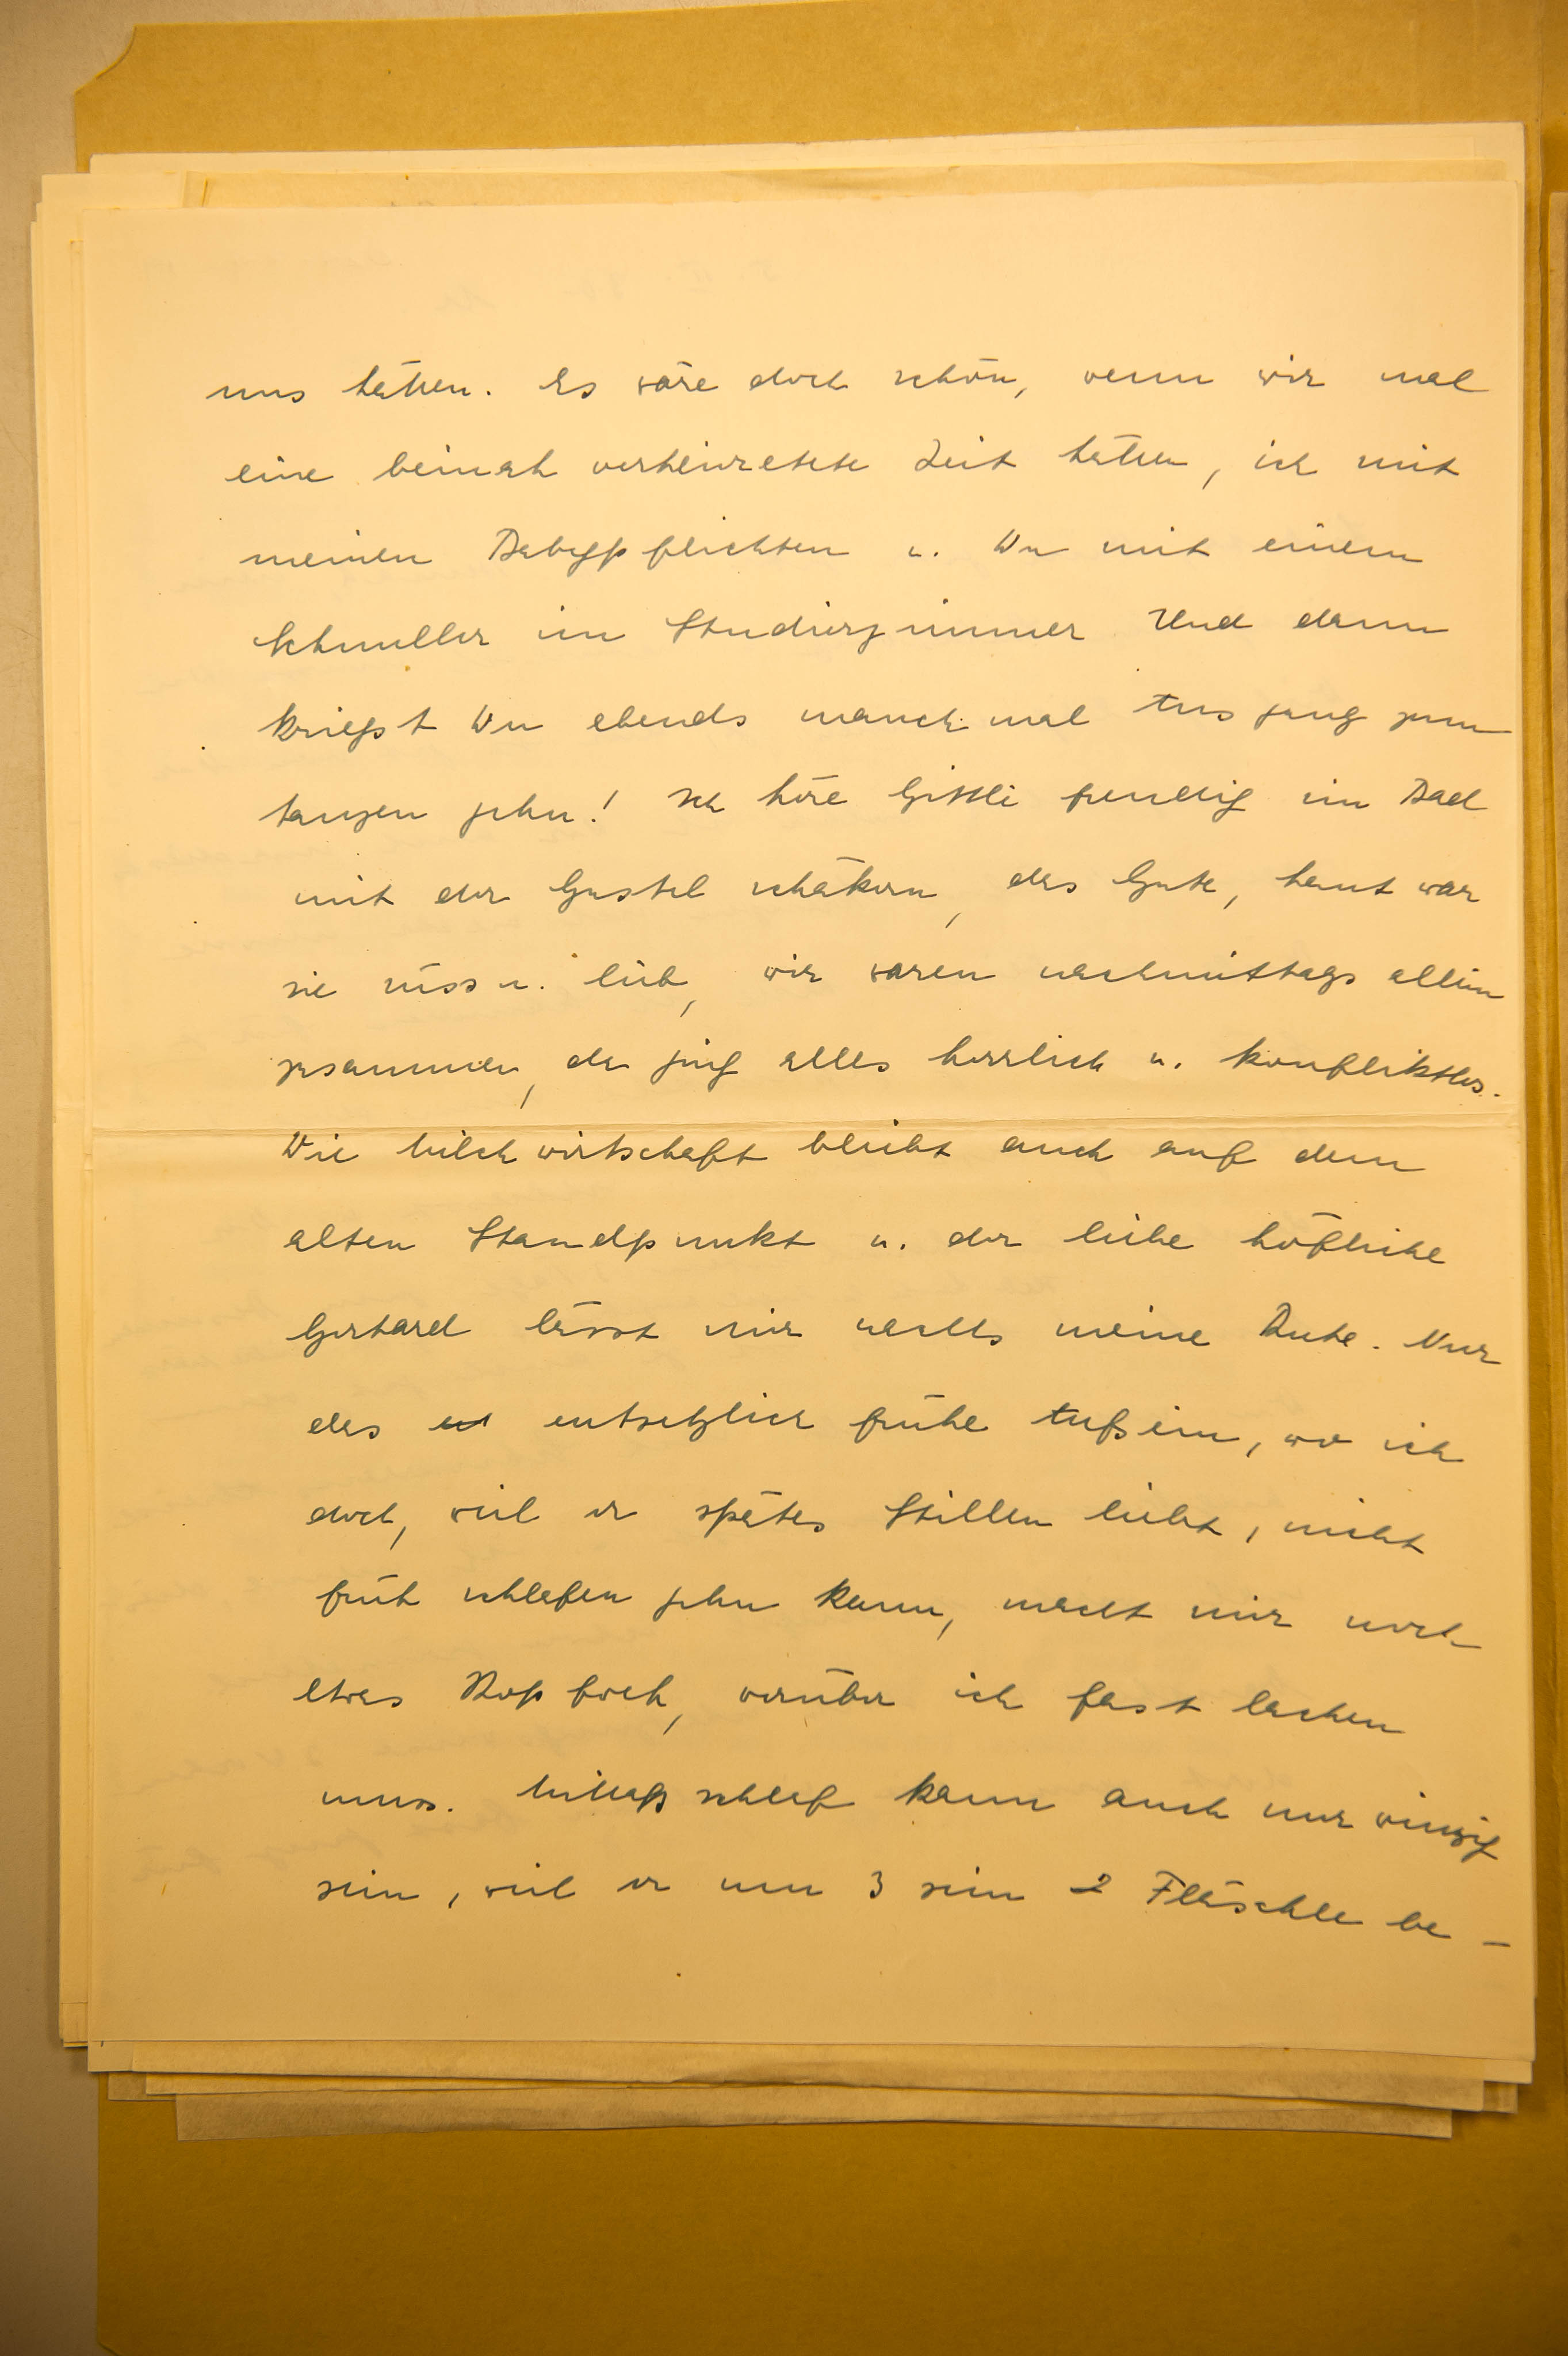 uns hätten. Es wäre doch schön, wenn wir mal
eine beinah verheiratete Zeit hätten, ich mit
meinen Babypflichten u. Du mit einem
Schnuller im Studierzimmer Und dann
kriegst Du abends manchmal Ausgang zum
tanzen gehn! Ich höre Gittli freudig im Bad
mit der Gustel schäkern, das Gute, heut war
sie süss u. lieb, wir waren nachmittags allein
zusammen, da ging alles herrlich u. konfliktlos.
Die Milchwirtschaft bleibt auch auf dem
alten Standpunkt u. der liebe höfliche
Gerhard lässt mir nachts meine Ruhe. Nur
das entsetzlich frühe Aufsein, wo ich
doch, weil er spätes Stillen liebt, nicht
früh schlafen gehn kann, macht mir noch
etwas Kopfweh, worüber ich fast lachen
muss. Mittagsschlaf kann auch nur winzig
sein, weil er um 3 sein 2 Fläschle be-